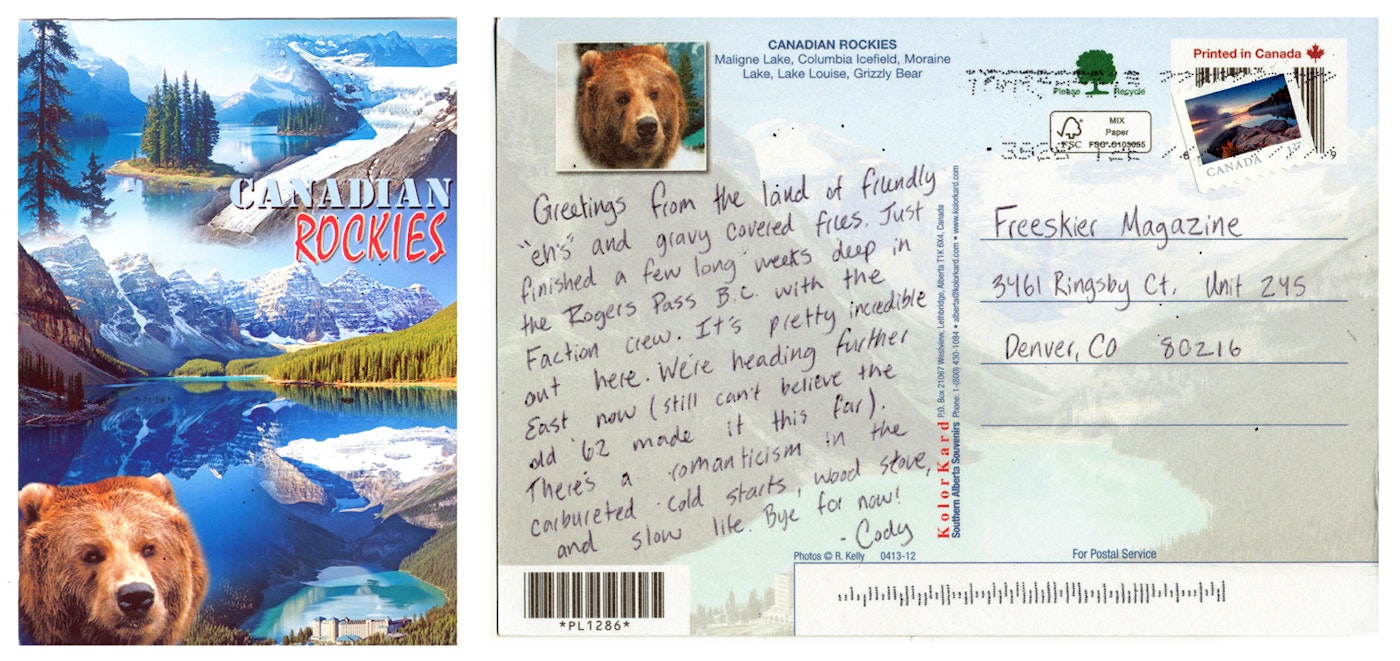 CANADIAN
ROCKIES
CANADIAN ROCKIES
Maligne Lake, Columbia Icefield, Moraine
Lake, Lake Louise, Grizzly Bear
Please Recycle
FSC
MIX
Paper
FSC® C103055
Printed in Canada
CANADA
Greetings from the land of friendly
"eh's" and gravy covered fries. Just
finished a few long weeks deep in
the Rogers Pass B.C. with the
Faction crew. It's pretty incredible
out here. We're heading further
East now (still can't believe the
old '62 made it this far).
There's a romanticism in the
carbureted cold starts, wood stove,
and slow life. Bye for now!
- Cody
KolorKard P.O. Box 21067 Westview, Lethbridge, Alberta T1K 6X4, Canada
Southern Alberta Souvenirs Phone: 1-(800) 430-1084 • alberta@kolorkard.com • www.kolorkard.com
Freeskier Magazine
3461 Ringsby Ct. Unit 245
Denver, CO 80216
Photos © R. Kelly 0413-12
For Postal Service
*PL1286*